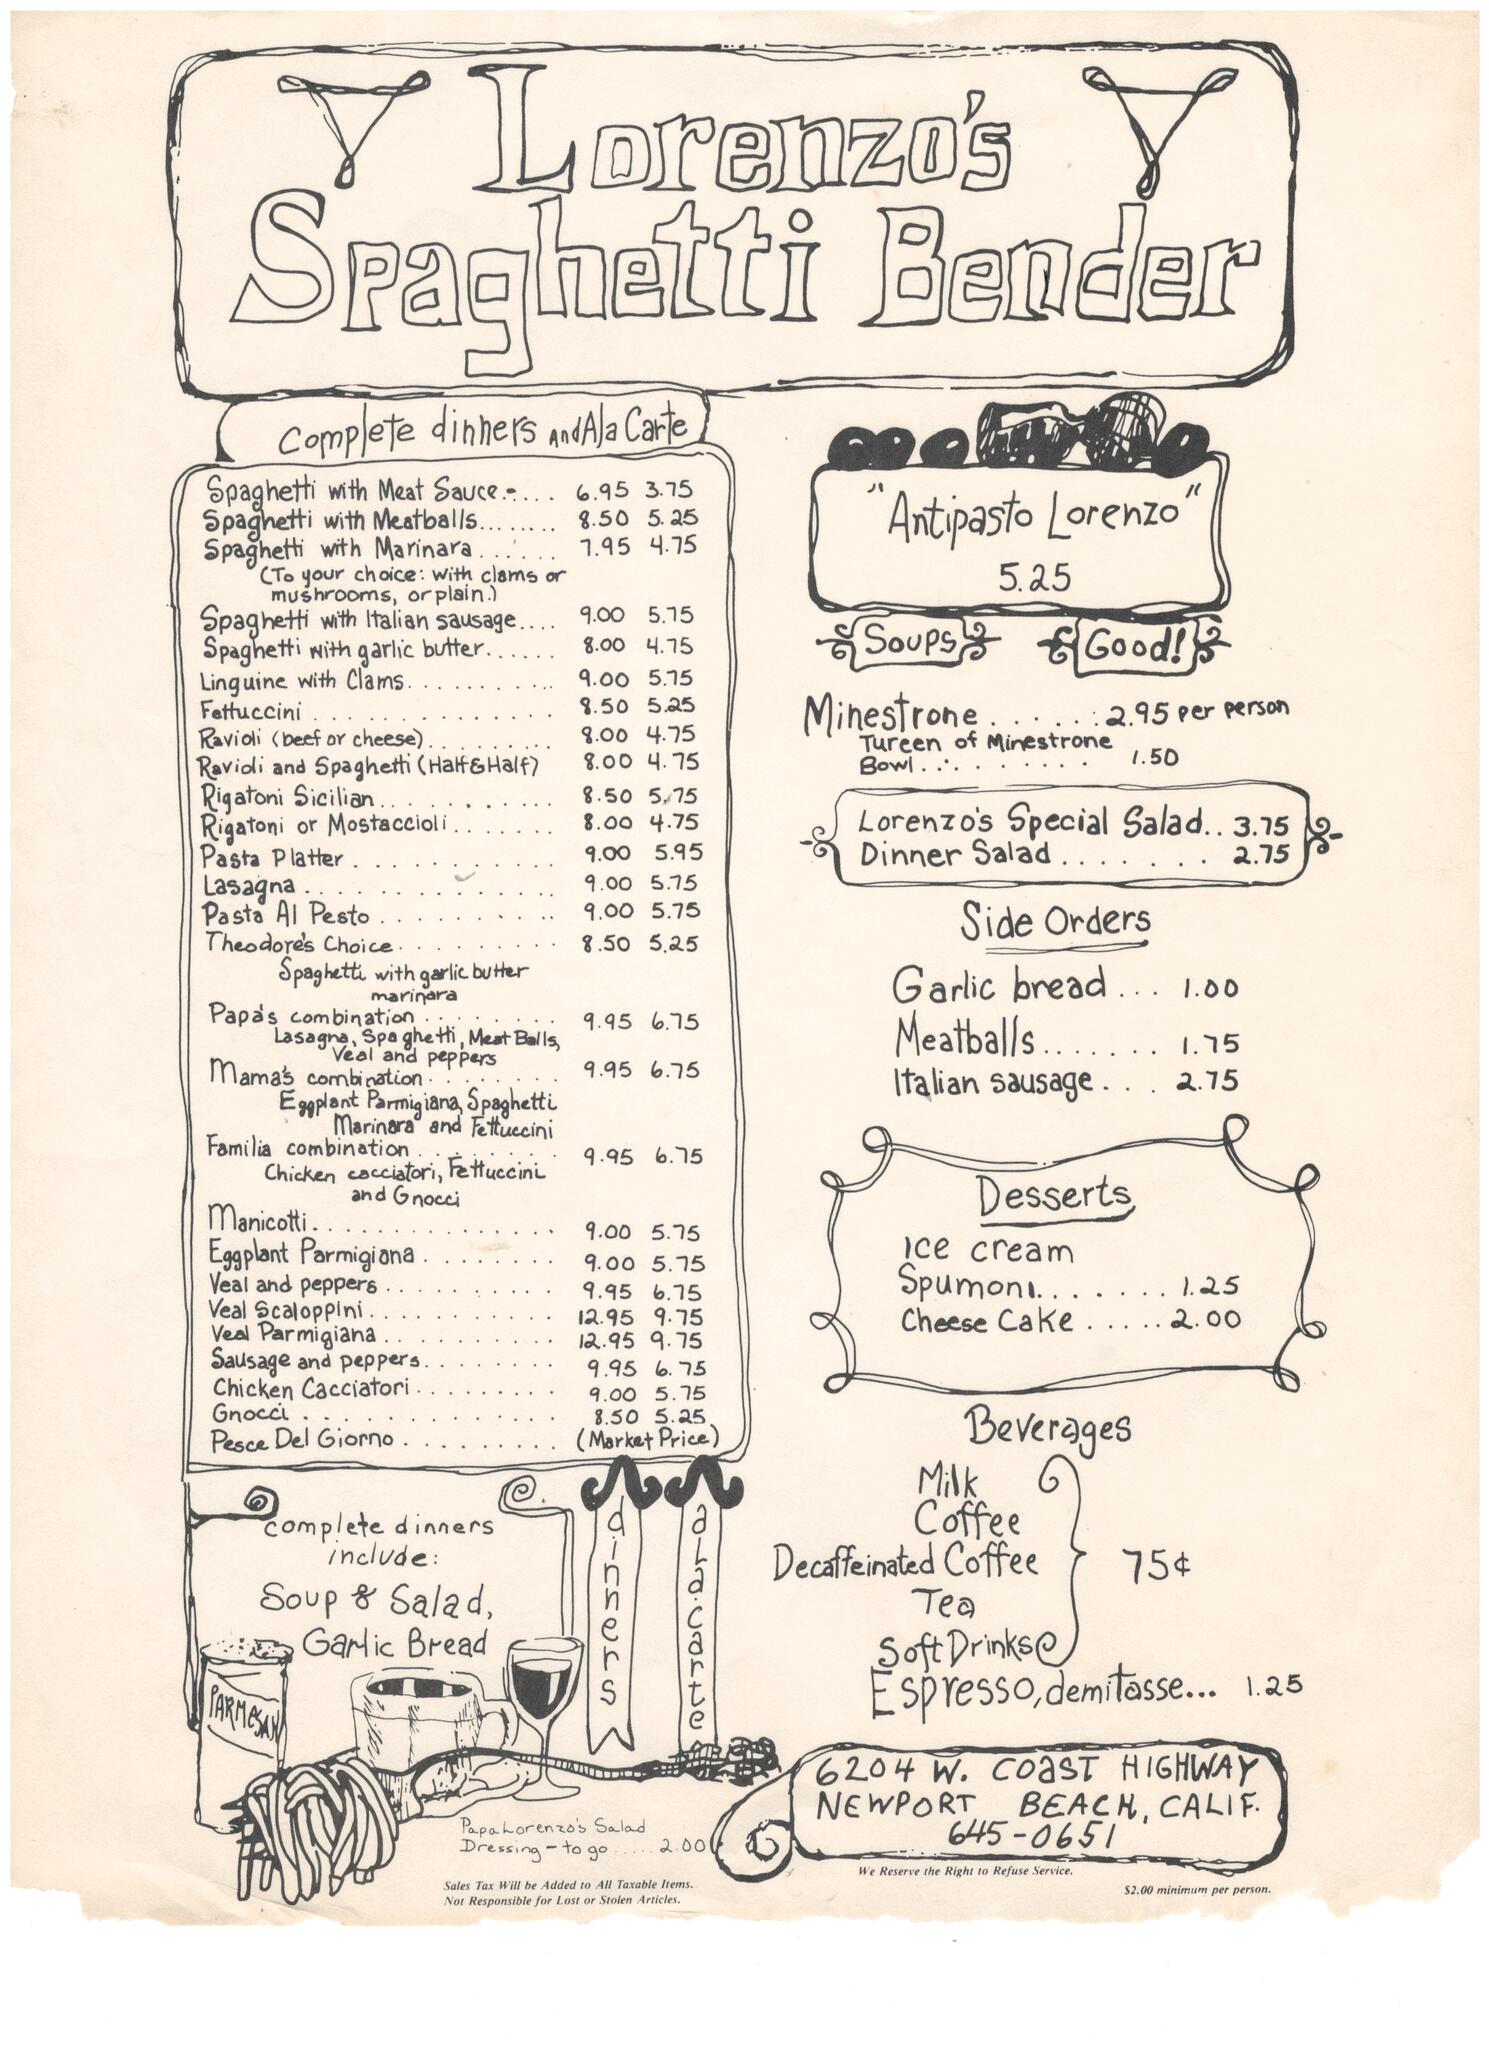 Lorenzo's
Spaghetti Bender
Complete dinners and Ala Carte
Spaghetti with Meat Sauce..... 6.95 3.75
Spaghetti with Meatballs....... 8.50 5.25
Spaghetti with Marinara ...... 7.95 4.75
(To your choice: with clams or
mushrooms, or plain.)
Spaghetti with Italian sausage.... 9.00 5.75
Spaghetti with garlic butter...... 8.00 4.75
Linguine with Clams........... 9.00 5.75
Fettuccini .............. 8.50 5.25
Ravioli (beef or cheese)......... 8.00 4.75
Ravioli and Spaghetti (Half & Half) 8.00 4.75
Rigatoni Sicilian........... 8.50 5.75
Rigatoni or Mostaccioli....... 8.00 4.75
Pasta Platter ............ 9.00 5.95
Lasagna .............. 9.00 5.75
Pasta Al Pesto ........... 9.00 5.75
Theodore's Choice.......... 8.50 5.25
Spaghetti with garlic butter
marinara
Papa's combination ......... 9.95 6.75
Lasagna, Spaghetti, Meat Balls,
Veal and peppers
Mama's combination........ 9.95 6.75
Eggplant Parmigiana, Spaghetti
Marinara and Fettuccini
Familia combination ........ 9.95 6.75
Chicken cacciatori, Fettuccini
and Gnocci
Manicotti............... 9.00 5.75
Eggplant Parmigiana ........ 9.00 5.75
Veal and peppers .......... 9.95 6.75
Veal Scaloppini........... 12.95 9.75
Veal Parmigiana .......... 12.95 9.75
Sausage and peppers........ 9.95 6.75
Chicken Cacciatori......... 9.00 5.75
Gnocci .............. 8.50 5.25
Pesce Del Giorno ......... (Market Price)
dinners
a la carte
complete dinners
include:
Soup & Salad,
Garlic Bread
PARMESAN
Papa Lorenzo's Salad
Dressing - to go ..... 2.00
Sales Tax Will be Added to All Taxable Items.
Not Responsible for Lost or Stolen Articles.
"Antipasto Lorenzo"
5.25
Soups Good!
Minestrone ...... 2.95 per person
Tureen of Minestrone
Bowl .......... 1.50
Lorenzo's Special Salad.. 3.75
Dinner Salad ....... 2.75
Side Orders
Garlic bread ... 1.00
Meatballs....... 1.75
Italian sausage... 2.75
Desserts
Ice cream
Spumoni....... 1.25
Cheese Cake ..... 2.00
Beverages
Milk
Coffee
Decaffeinated Coffee 75¢
Tea
Soft Drinks
Espresso, demitasse... 1.25
6204 W. COAST HIGHWAY
NEWPORT BEACH, CALIF.
645-0651
We Reserve the Right to Refuse Service.
$2.00 minimum per person.